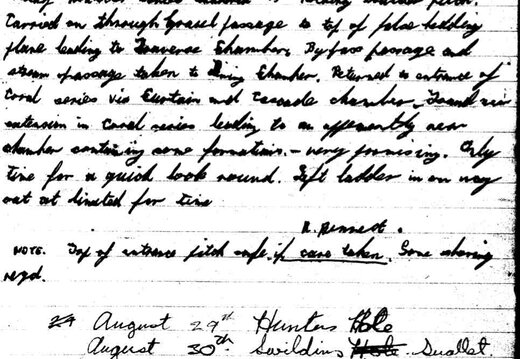 Carried on through Gravel passage to top of false bedding
plane leading to Traverse Chamber. Bypass passage and
stream passage taken to Dining Chamber. Returned to entrance of
Coral series via Curtain and Cascade chamber. Found
extension in Coral series leading to an apparently new
chamber containing some formations. - very promising. Only
time for a quick look round. Left ladder in on way
out as limited for time
R. Bennett.
NOTE. Top of entrance pitch safe if care taken. Some shoring
reqd.
August 29th Hunters Hole
August 30th Swildons Hole. Swallet.